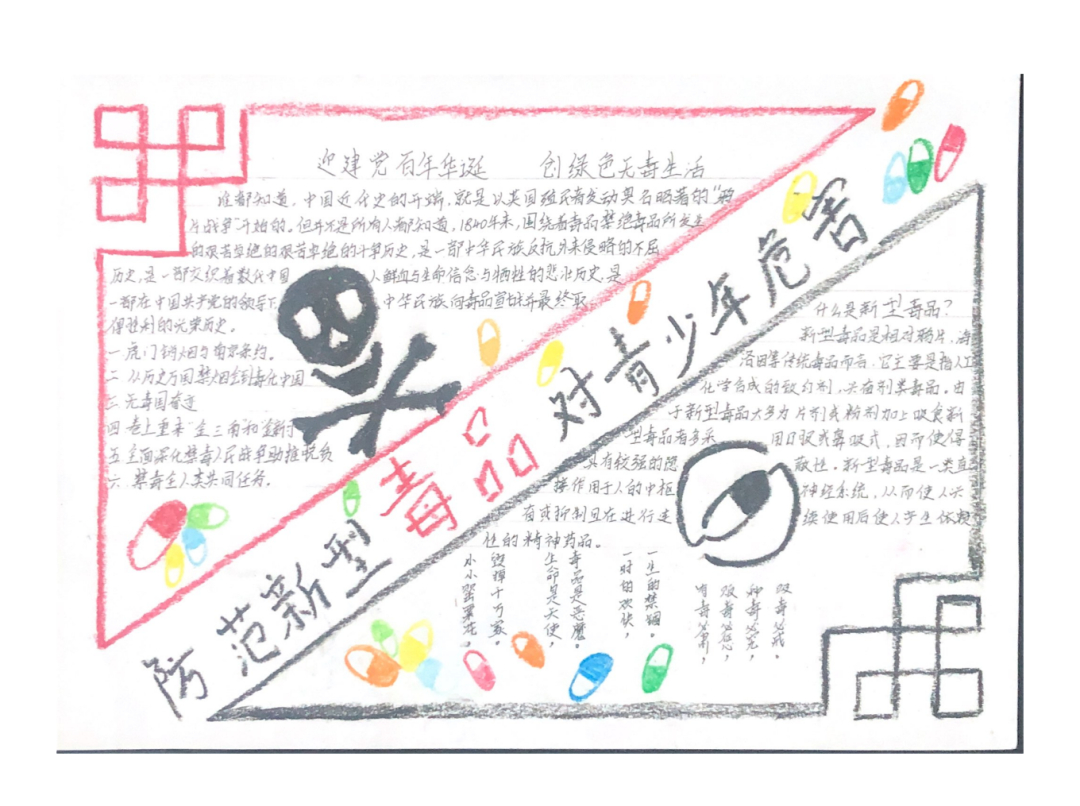 迎建党百年华诞 创绿色无毒生活
谁都知道,中国近代史的开端,就是以英国殖民者发动臭名昭著的“鸦
片战争”开始的。但并不是所有人都知道,1840年来,围绕着毒品禁绝毒品所发生
的艰苦卓绝的艰苦卓绝的斗争历史,是一部中华民族反抗外来侵略的不屈
历史,是一部交织着数代中国人鲜血与生命信念与牺牲的悲壮历史,是
一部在中国共产党的领导下中华民族向毒品宣战并最终取
得胜利的光荣历史。
一虎门销烟与南京条约。
二 从历史万国禁烟会到毒化中国
三 无毒国奇迹
四 卷土重来 金三角和金新月
五 全面深化禁毒人民战争助推脱贫
六 禁毒全人类共同任务。
防范新型毒品对青少年危害
什么是新型毒品?
新型毒品是相对鸦片,海
洛因等传统毒品而言,它主要是指人工
化学合成的致幻剂,兴奋剂类毒品。由
于新型毒品大多为片剂或粉剂加上吸食新
型毒品者多采用口服或鼻吸式,因而使得
具有较强的隐蔽性。新型毒品是一类直
接作用于人的中枢神经系统,从而使人兴
奋或抑制且在进行连续使用后使人产生依赖
性的精神药品。
吸毒必戒。
种毒必究,
贩毒必惩,
有毒必肃,
一生的禁锢。
一时的欢快,
毒品是恶魔。
生命是天使,
毁掉十万家。
小小罂粟花,